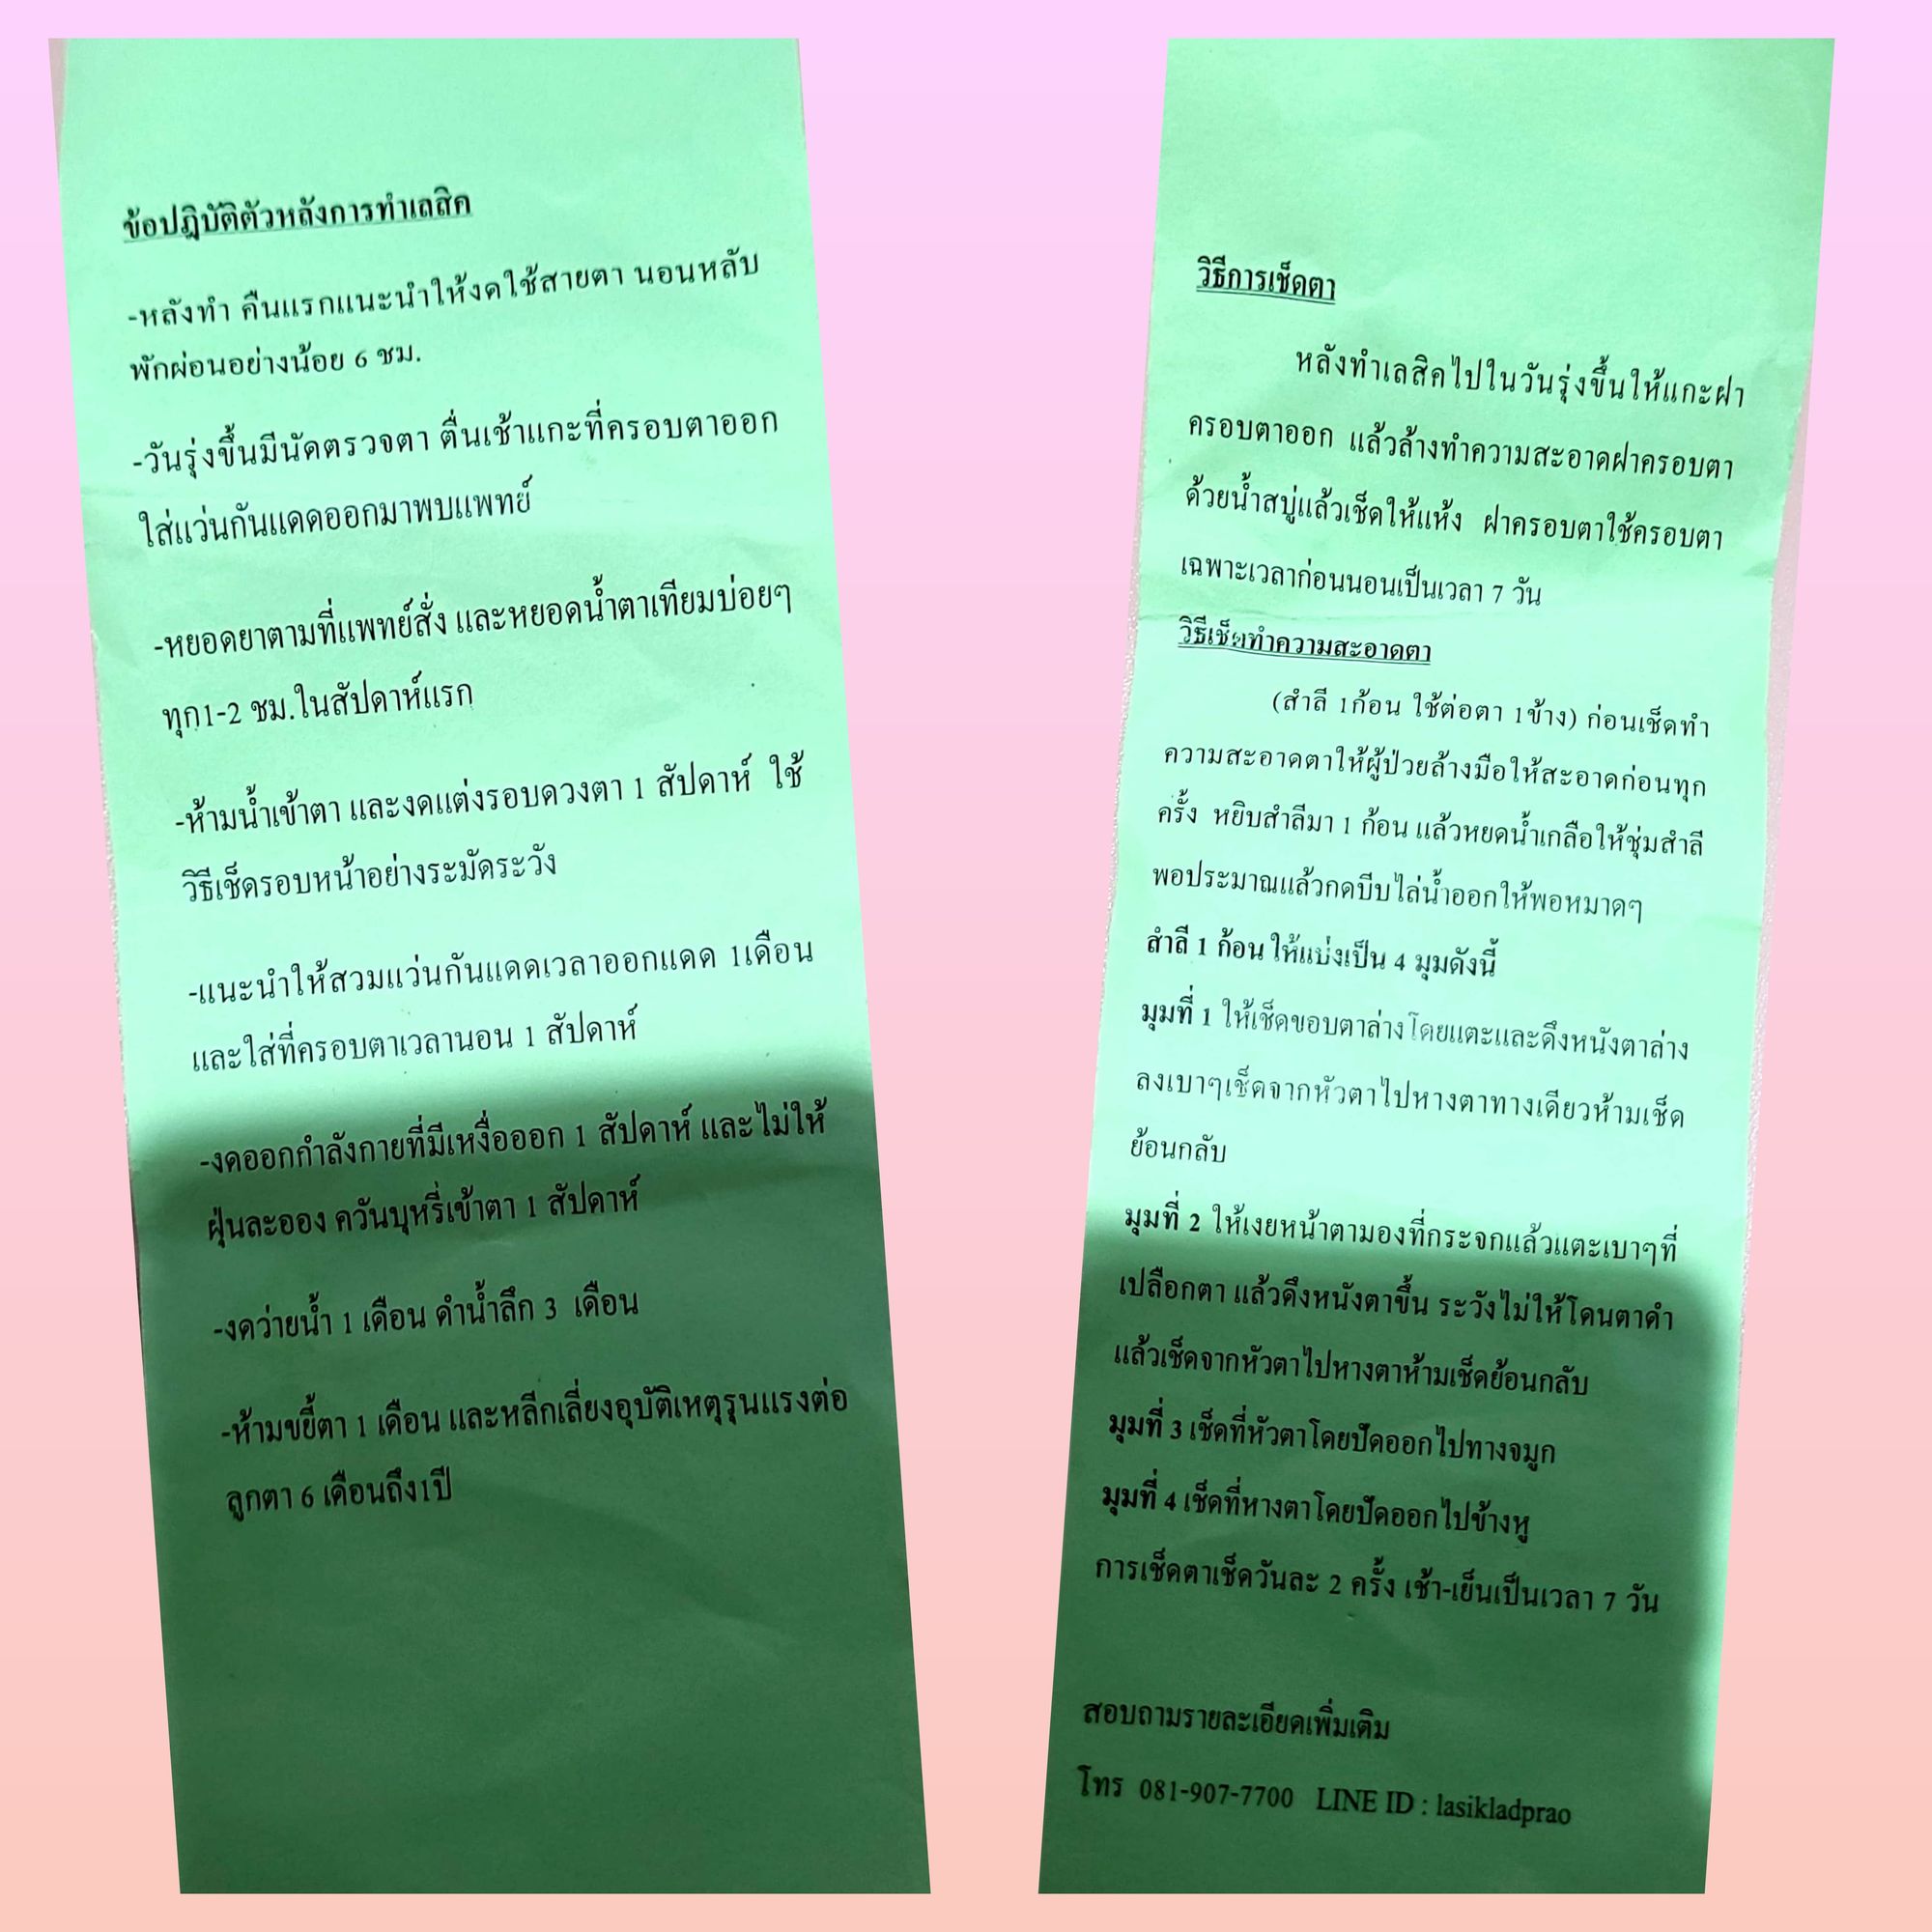 ข้อปฎิบัติตัวหลังการทำเลสิค
-หลังทำ คืนแรกแนะนำให้งดใช้สายตา นอนหลับ
พักผ่อนอย่างน้อย 6 ชม.
-วันรุ่งขึ้นมีนัดตรวจตา ตื่นเช้าแกะที่ครอบตาออก
ใส่แว่นกันแดดออกมาพบแพทย์
-หยอดยาตามที่แพทย์สั่ง และหยอดน้ำตาเทียมบ่อยๆ
ทุก1-2 ชม.ในสัปดาห์แรก
-ห้ามน้ำเข้าตา และงดแต่งรอบดวงตา 1 สัปดาห์ ใช้
วิธีเช็ดรอบหน้าอย่างระมัดระวัง
-แนะนำให้สวมแว่นกันแดดเวลาออกแดด 1เดือน
และใส่ที่ครอบตาเวลานอน 1 สัปดาห์
-งดออกกำลังกายที่มีเหงื่อออก 1 สัปดาห์ และไม่ให้
ฝุ่นละออง ควันบุหรี่เข้าตา 1 สัปดาห์
-งดว่ายน้ำ 1 เดือน ดำน้ำลึก 3 เดือน
-ห้ามขยี้ตา 1 เดือน และหลีกเลี่ยงอุบัติเหตุรุนแรงต่อ
ลูกตา 6 เดือนถึง1ปี
วิธีการเช็ดตา
หลังทำเลสิคไปในวันรุ่งขึ้นให้แกะฝา
ครอบตาออก แล้วล้างทำความสะอาดฝาครอบตา
ด้วยน้ำสบู่แล้วเช็ดให้แห้ง ฝาครอบตาใช้ครอบตา
เฉพาะเวลาก่อนนอนเป็นเวลา 7 วัน
วิธีเช็ดทำความสะอาดตา
(สำลี 1ก้อน ใช้ต่อตา 1ข้าง) ก่อนเช็ดทำ
ความสะอาดตาให้ผู้ป่วยล้างมือให้สะอาดก่อนทุก
ครั้ง หยิบสำลีมา 1 ก้อน แล้วหยดน้ำเกลือให้ชุ่มสำลี
พอประมาณแล้วกดบีบไล่น้ำออกให้พอหมาดๆ
สำลี 1 ก้อน ให้แบ่งเป็น 4 มุมดังนี้
มุมที่ 1 ให้เช็ดขอบตาล่างโดยแตะและดึงหนังตาล่าง
ลงเบาๆเช็ดจากหัวตาไปหางตาทางเดียวห้ามเช็ด
ย้อนกลับ
มุมที่ 2 ให้เงยหน้าตามองที่กระจกแล้วแตะเบาๆที่
เปลือกตา แล้วดึงหนังตาขึ้น ระวังไม่ให้โดนตาดำ
แล้วเช็ดจากหัวตาไปหางตาห้ามเช็ดย้อนกลับ
มุมที่ 3 เช็ดที่หัวตาโดยปัดออกไปทางจมูก
มุมที่ 4 เช็ดที่หางตาโดยปัดออกไปข้างหู
การเช็ดตาเช็ดวันละ 2 ครั้ง เช้า-เย็นเป็นเวลา 7 วัน
สอบถามรายละเอียดเพิ่มเติม
โทร 081-907-7700 LINE ID : lasikladprao